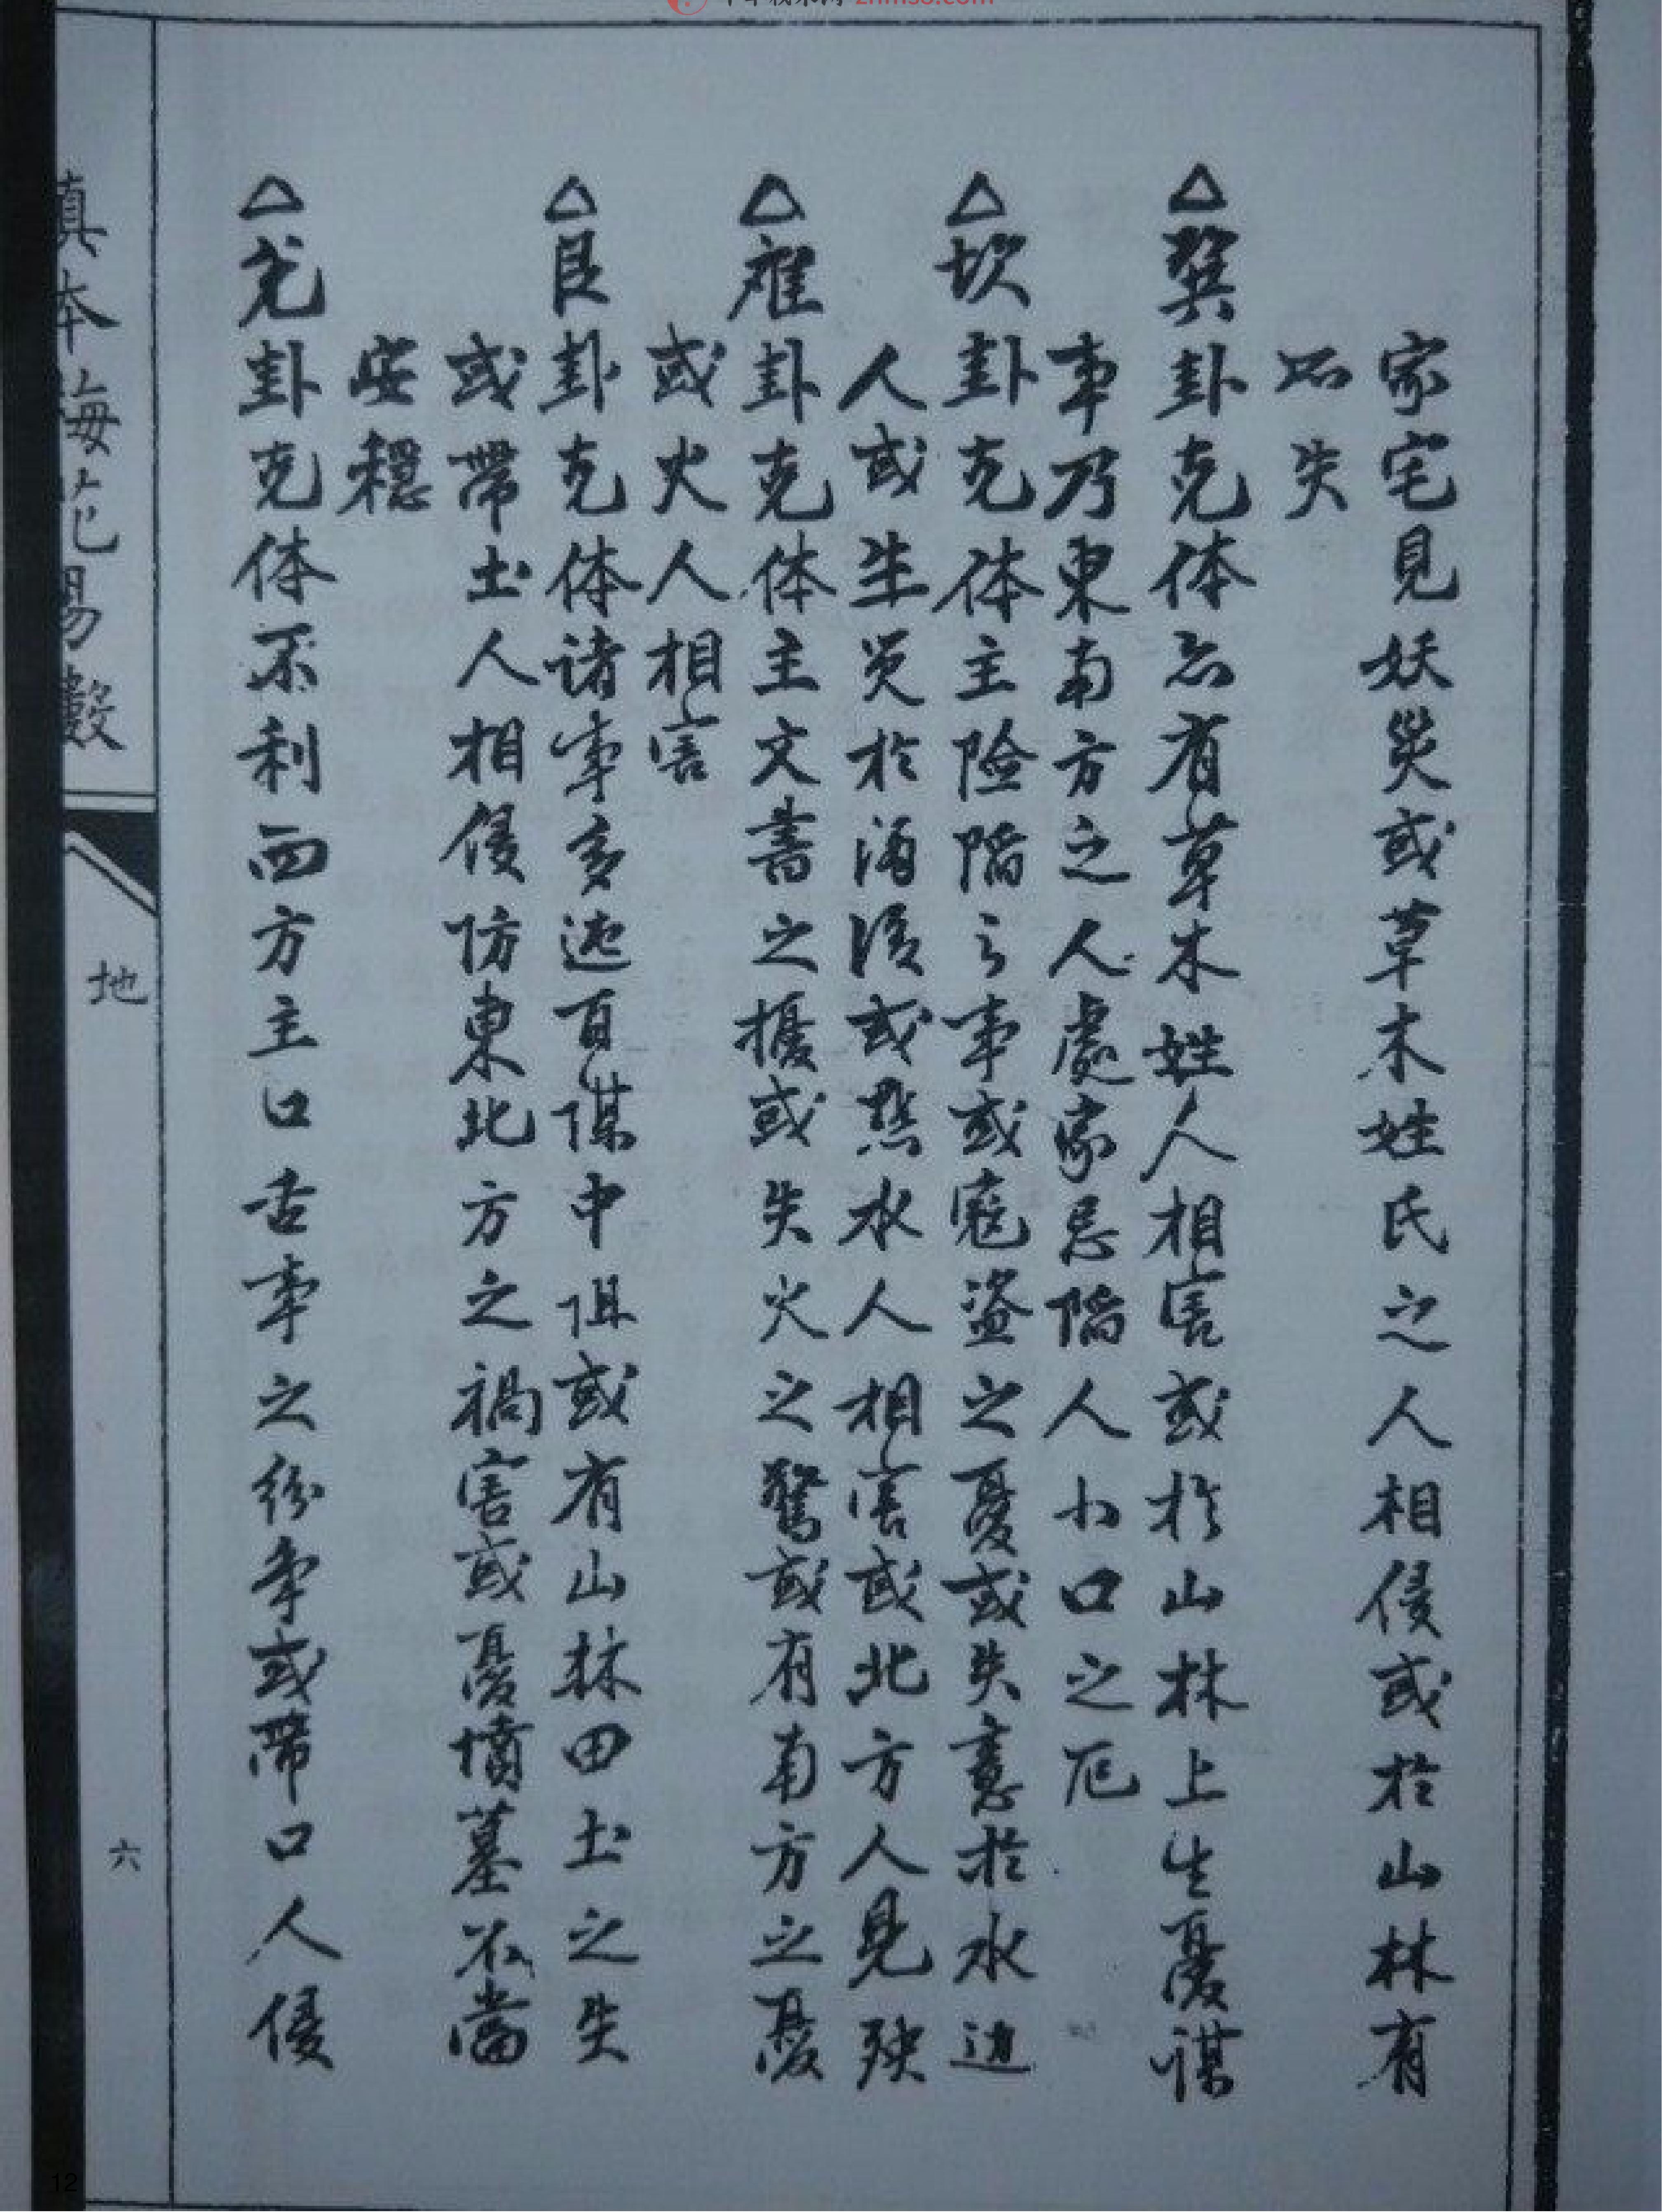 家宅見妖災或草木姓氏之人相侵或於山林有
所失
△巽卦克体亦有草木姓人相害或於山林上生憂謀
事乃東南方之人處家忌陷人小口之厄
△坎卦克体主險陷之事或寇盗之憂或失意於水边
人或生災於酒後或點水人相害或北方人見殃
△離卦克体主文書之擾或失火之驚或有南方之憂
或火人相害
△艮卦克体诸事多迍百謀中阻或有山林田土之失
或帶土人相侵防東北方之禍害或憂墳墓不當
安穩
△兌卦克体不利西方主口舌事之紛争或帶口人侵
真本梅花易數
地
六
12
znms8.com